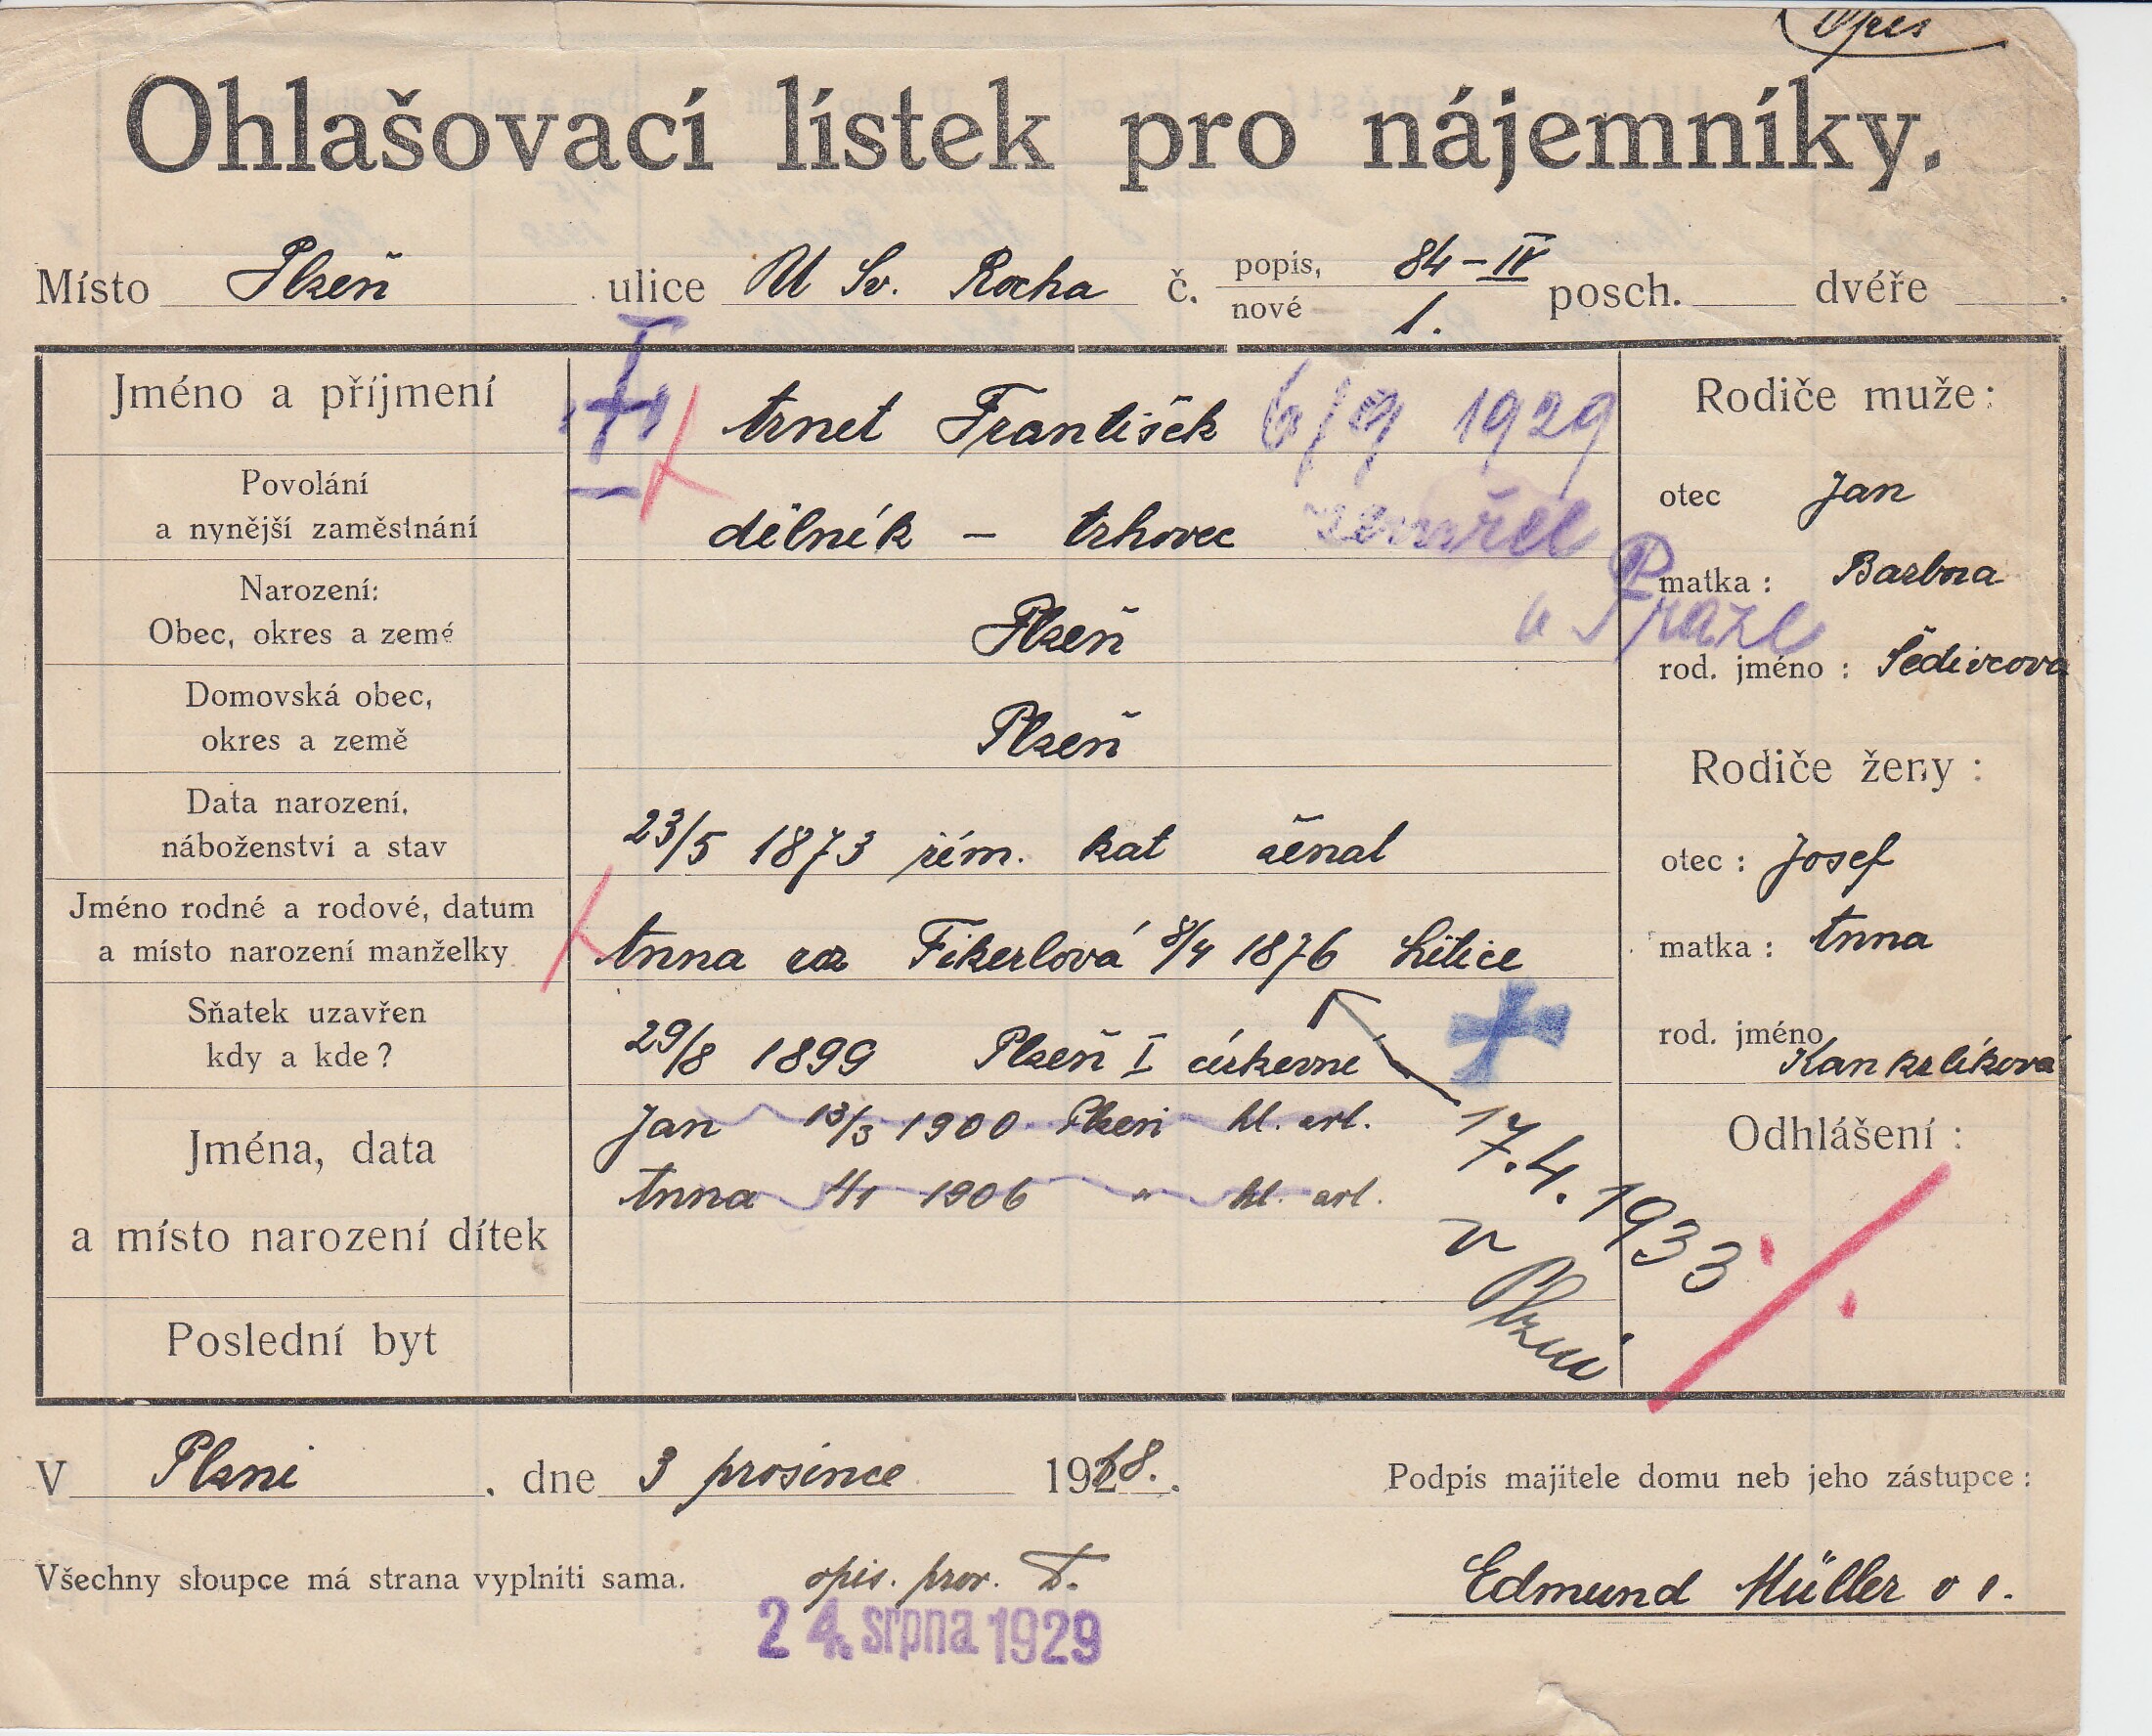 Opis
Ohlašovací lístek pro nájemníky.
Místo Plzeň ulice U Sv. Rocha č. popis, 84-IV posch. dvéře .
nové 1.
Jméno a příjmení Arnet František 6/9 1929
Povolání
a nynější zaměstnání dělník – trhovec zemřel
v Praze
Narození:
Obec, okres a země Plzeň
Domovská obec,
okres a země Plzeň
Data narození,
náboženství a stav 23/5 1873 řím. kat ženat
Jméno rodné a rodové, datum
a místo narození manželky Anna roz Fikerlová 8/4 1876 Litice
Sňatek uzavřen
kdy a kde? 29/8 1899 Plzeň I církevně
Jména, data
a místo narození dítek
Jan 13/3 1900 Plzeň hl. avl.
Anna 4/1 1906 " hl. avl.
17.4.1933
v Plzni
Poslední byt
Rodiče muže:
otec Jan
matka : Barbora
rod. jméno : Šedivcova
Rodiče ženy :
otec : Josef
matka : Anna
rod. jméno
Kankrlíková
Odhlášení :
V Plzni . dne 3 prosince 1928. .
Podpis majitele domu neb jeho zástupce :
Všechny sloupce má strana vyplniti sama.
opis. prov. T.
Edmund Müller v r.
24. srpna 1929